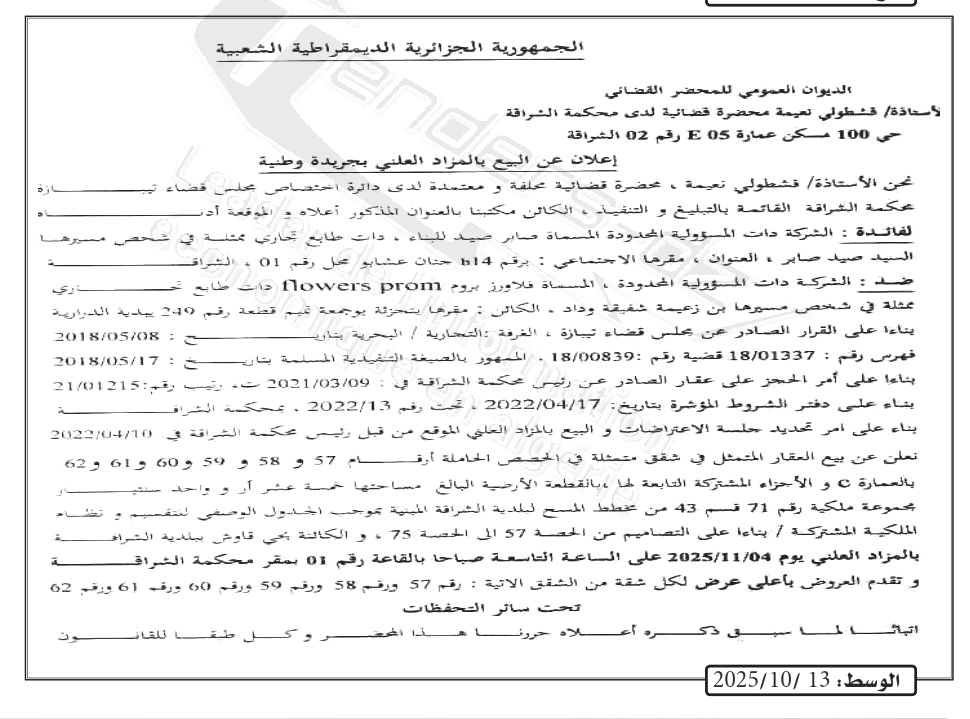 الجمهورية الجزائرية الديمقراطية الشعبية
الديوان العمومي للمحضر القضائي
لأستاذة/ قشطولي نعيمة محضرة قضائية لدى محكمة الشراقة
حي 100 مسكن عمارة E 05 رقم 02 الشراقة
إعلان عن البيع بالمزاد العلني بجريدة وطنية
نحن الأستاذة/ قشطولي نعيمة ، محضرة قضائية محلفة و معتمدة لدى دائرة اختصاص مجلس قضاء تيبـــــــازة
محكمة الشراقة القائمة بالتبليغ و التنفيذ ، الكائن مكتبنا بالعنوان المذكور أعلاه و الموقعة أدنـــــــاه
لفائدة : الشركة ذات المسؤولية المحدودة المسماة صابر صيد للبناء ، ذات طابع تجاري ممثلـــة في شخص مسيرهـا
السيد صيد صابر ، العنوان ، مقرها الاجتماعي : برقم h14 حنان عشابو محل رقم 01 ، الشراقـــــــة
ضـــد : الشركـة ذات المسؤولية المحدودة ، المسماة فلاورز بروم flowers prom ذات طابع تجـــــاري
ممثلة في شخص مسيرها بن زعيمة شفيقة وداد ، الكائن : مقرها بتجزئة بوجمعة تميم قطعة رقم 249 ببلدية الدرارية
بناءا على القرار الصادر عن مجلس قضاء تيبازة ، الغرفة :التجارية / البحرية بتاريـــــــخ : 2018/05/08
فهرس رقم : 18/01337 قضية رقم :18/00839 ، الممهور بالصيغة التنفيذية المسلمة بتاريـــــخ : 2018/05/17
بناءا على أمر الحجز على عقار الصادر عن رئيس محكمة الشراقة في : 2021/03/09 ت، رتيب رقم:21/01215
بناء على دفتر الشروط المؤشرة بتاريخ: 2022/04/17 ، تحت رقم 2022/13 ، بمحكمة الشراقـــــــة
بناء على امر تحديد جلسة الاعتراضات و البيع بالمزاد العلني الموقع من قبل رئيس محكمة الشراقة في 2022/04/10
نعلن عن بيع العقار المتمثل في شقق متمثلة في الحصص الحاملة أرقـــــــام 57 و 58 و 59 و 60 و 61 و 62
بالعمارة C و الأجزاء المشتركة التابعة لها ،بالقطعة الأرضية البالغ مساحتها خمسة عشر آر و واحد سنتيـــار
مجموعة ملكية رقم 71 قسم 43 من مخطط المسح لبلدية الشراقة المبنية بموجب الجدول الوصفي للتقسيم و نظـــام
الملكية المشتركة / بناءا على التصاميم من الحصة 57 الى الحصة 75 ، و الكائنة بحي قاوش ببلدية الشراقـــــة
بالمزاد العلني يوم 2025/11/04 على الساعة التاسعة صباحا بالقاعة رقم 01 بمقر محكمة الشراقـــــــة
و تقدم العروض بأعلى عرض لكل شقة من الشقق الاتية : رقم 57 ورقم 58 ورقم 59 ورقم 60 ورقم 61 ورقم 62
تحت سائر التحفظات
اثباتـــا لمـا سبـــق ذكـــره أعـــلاه حررنـــا هـــذا المحضـــر و كـــل طبقـــا للقانـــون
الوسط: 13 /2025/10